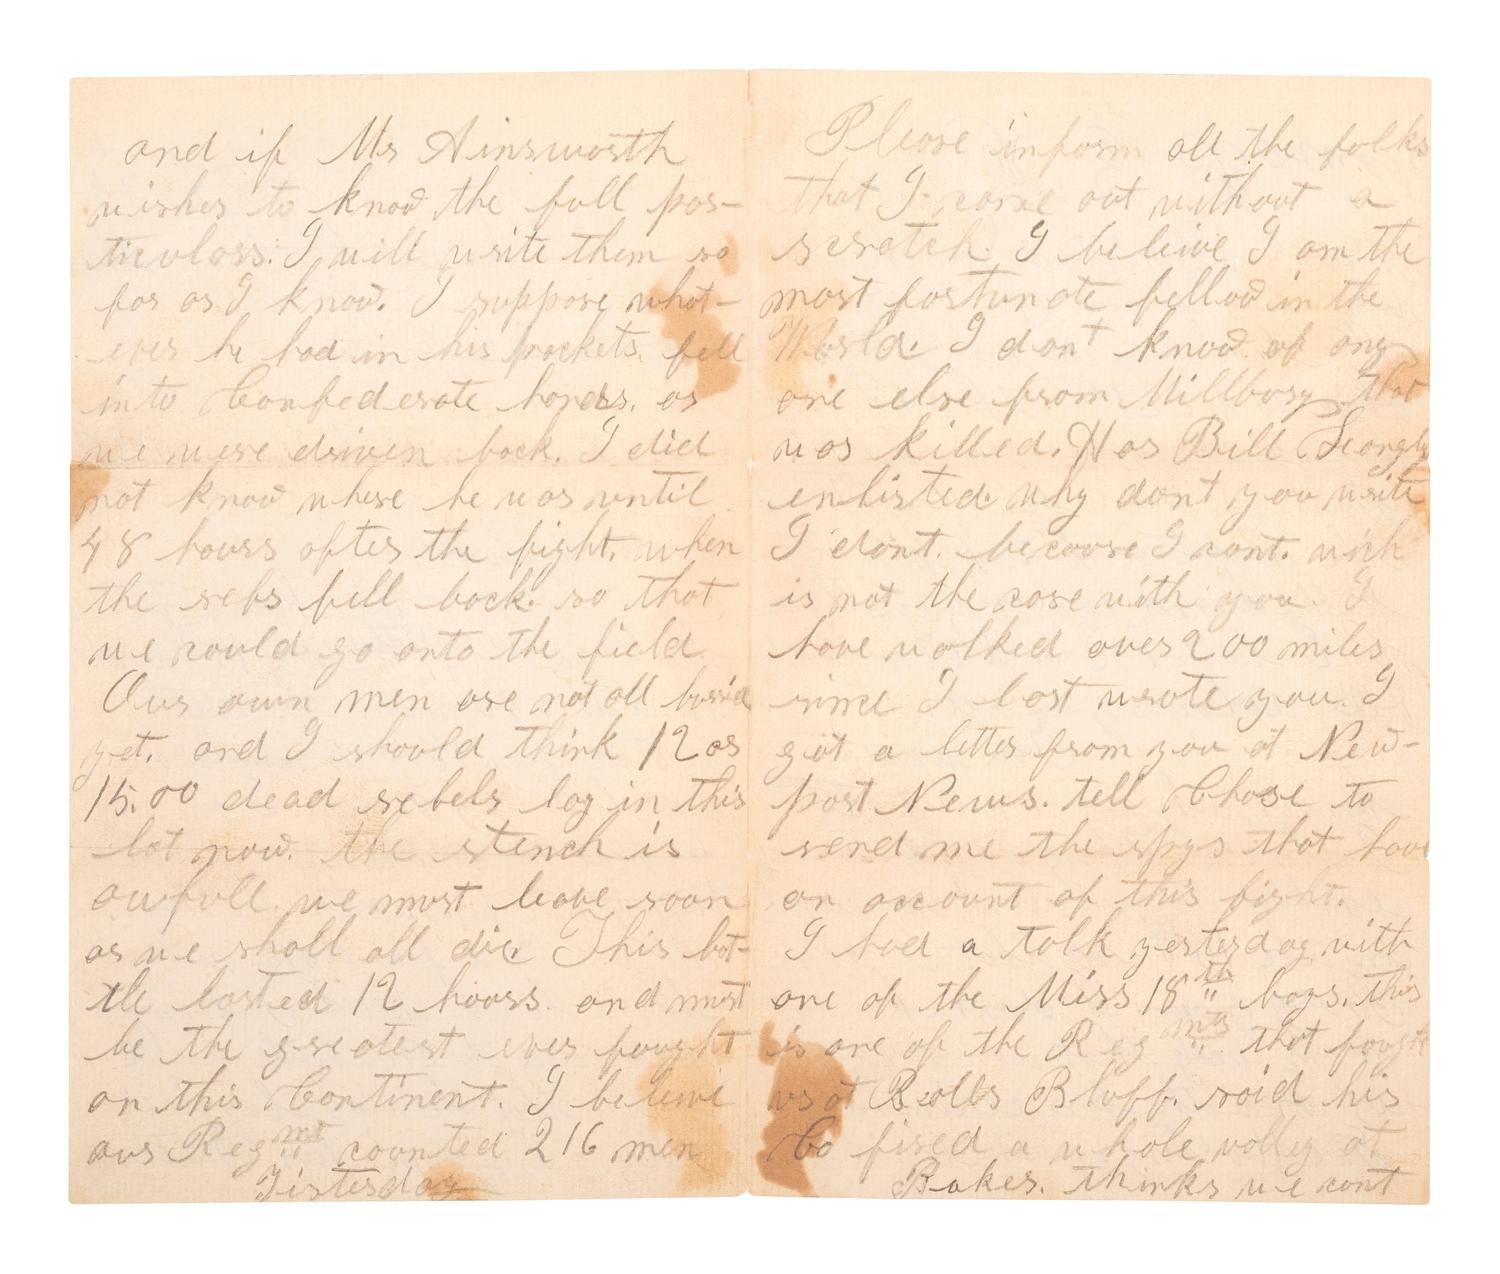 and if Mr Ainsworth
wishes to know the full par-
ticulars. I will write them so
far as I know. I suppose what-
ever he had in his pockets. fell
into Confederate hands. as
we were driven back. I did
not know where he was until
48 hours after the fight. when
the rebs fell back. so that
we could go onto the field
Our own men are not all buried
yet. and I should think 12 or
15.00 dead rebels lay in this
lot now. the stench is
awfull. we must leave soon
or we shall all die. This bat-
tle lasted 12 hours. and must
be the greatest ever fought
on this Continent. I beleive
our Regmt counted 216 men
Yisterday
Please inform all the folks
that I came out without a
scratch. I beleive I am the
most fortunate fellow in the
World. I don't know of any
one else from Millbury that
was killed. Has Bill
enlisted. Why dont you write
I dont. because I cant. wich
is not the case with you. I
have walked over 200 miles
since I last wrote you. I
got a letter from you at New-
port News. tell Chase to
send me the spys that have
an account of this fight.
I had a talk yesterday with
one of the Miss 18th boys. this
is one of the Regmts that fought
us at Balls Bluff. said his
Co fired a whole volley at
Baker. thinks we cant